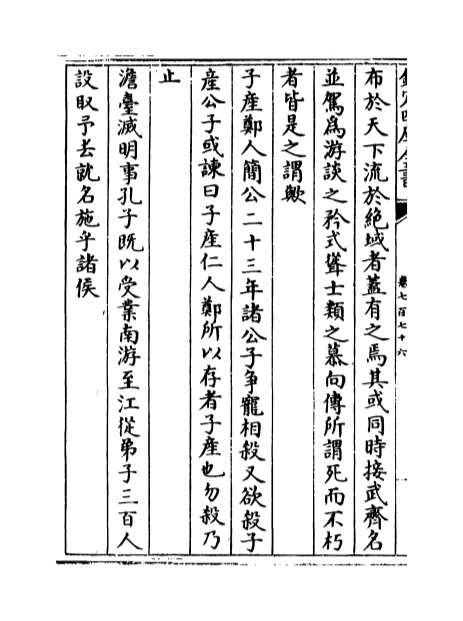 欽定四庫全書
卷七百七十六
布於天下流於絶域者蓋有之焉其或同時接武齊名
並駕為游談之矜式聳士類之慕向傳所謂死而不朽
者皆是之謂歟
子產鄭人簡公二十三年諸公子爭寵相殺又欲殺子
產公子或諫曰子產仁人鄭所以存者子產也勿殺乃
止
澹臺滅明事孔子既以受業南游至江從弟子三百人
設取予去就名施乎諸侯